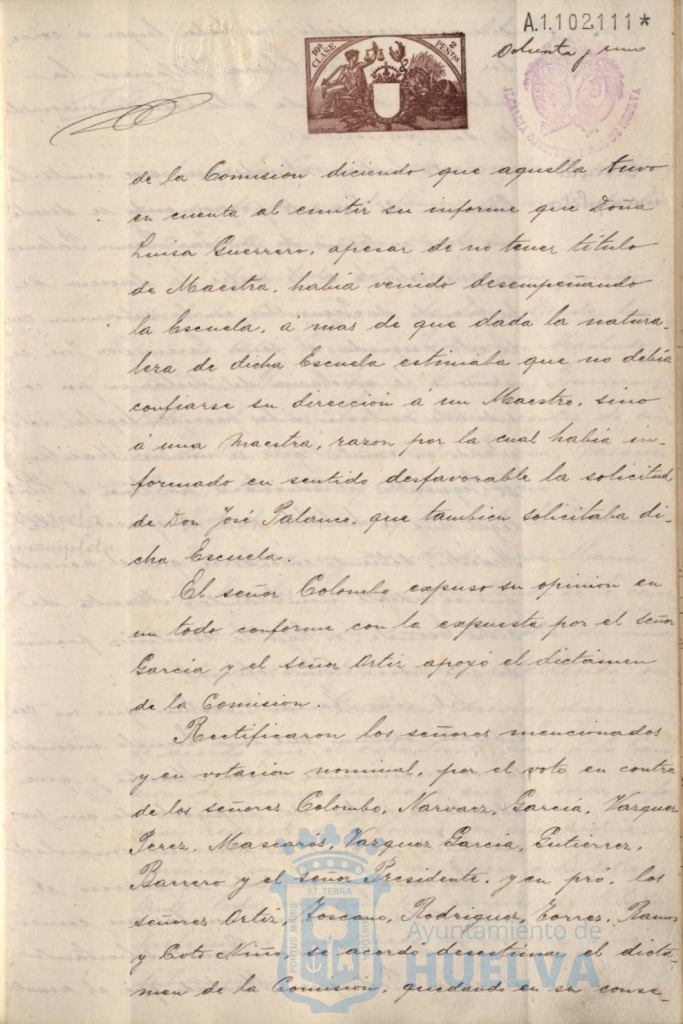 A.1.102.111*
10ª CLASE 2 PESTAS
Ochenta y uno
ALCALDIA DE HUELVA
de la Comision diciendo que aquella tuvo
en cuenta al emitir su informe que Doña
Luisa Guerrero, apesar de no tener titulo
de Maestra, habia venido desempeñando
la Escuela, á mas de que dada la natura-
leza de dicha Escuela estimaba que no debia
confiarse su direccion á un Maestro, sino
á una Maestra, razon por la cual habia in-
formado en sentido desfavorable la solicitud
de Don José Palanco, que tambien solicitaba di-
cha Escuela.
El señor Colombo expuso su opinion en
un todo conforme con la expuesta por el señor
Garcia y el señor Ortiz apoyó el dictámen
de la Comision.
Rectificaron los señores mencionados
y en votacion nominal, por el voto en contra
de los señores Colombo, Narvaez, Garcia, Vazquez
Perez, Mascarós, Vazquez Garcia, Gutierrez,
Barrero y el señor Presidente, y en pró, los
señores Ortiz, Toscano, Rodriguez, Torres, Ramos
y Coto Niño, se acordó desestimar el dictá-
men de la Comision, quedando en su conse-
PORTUS MARIS ET TERRÆ CUSTODIA
Ayuntamiento de
HUELVA